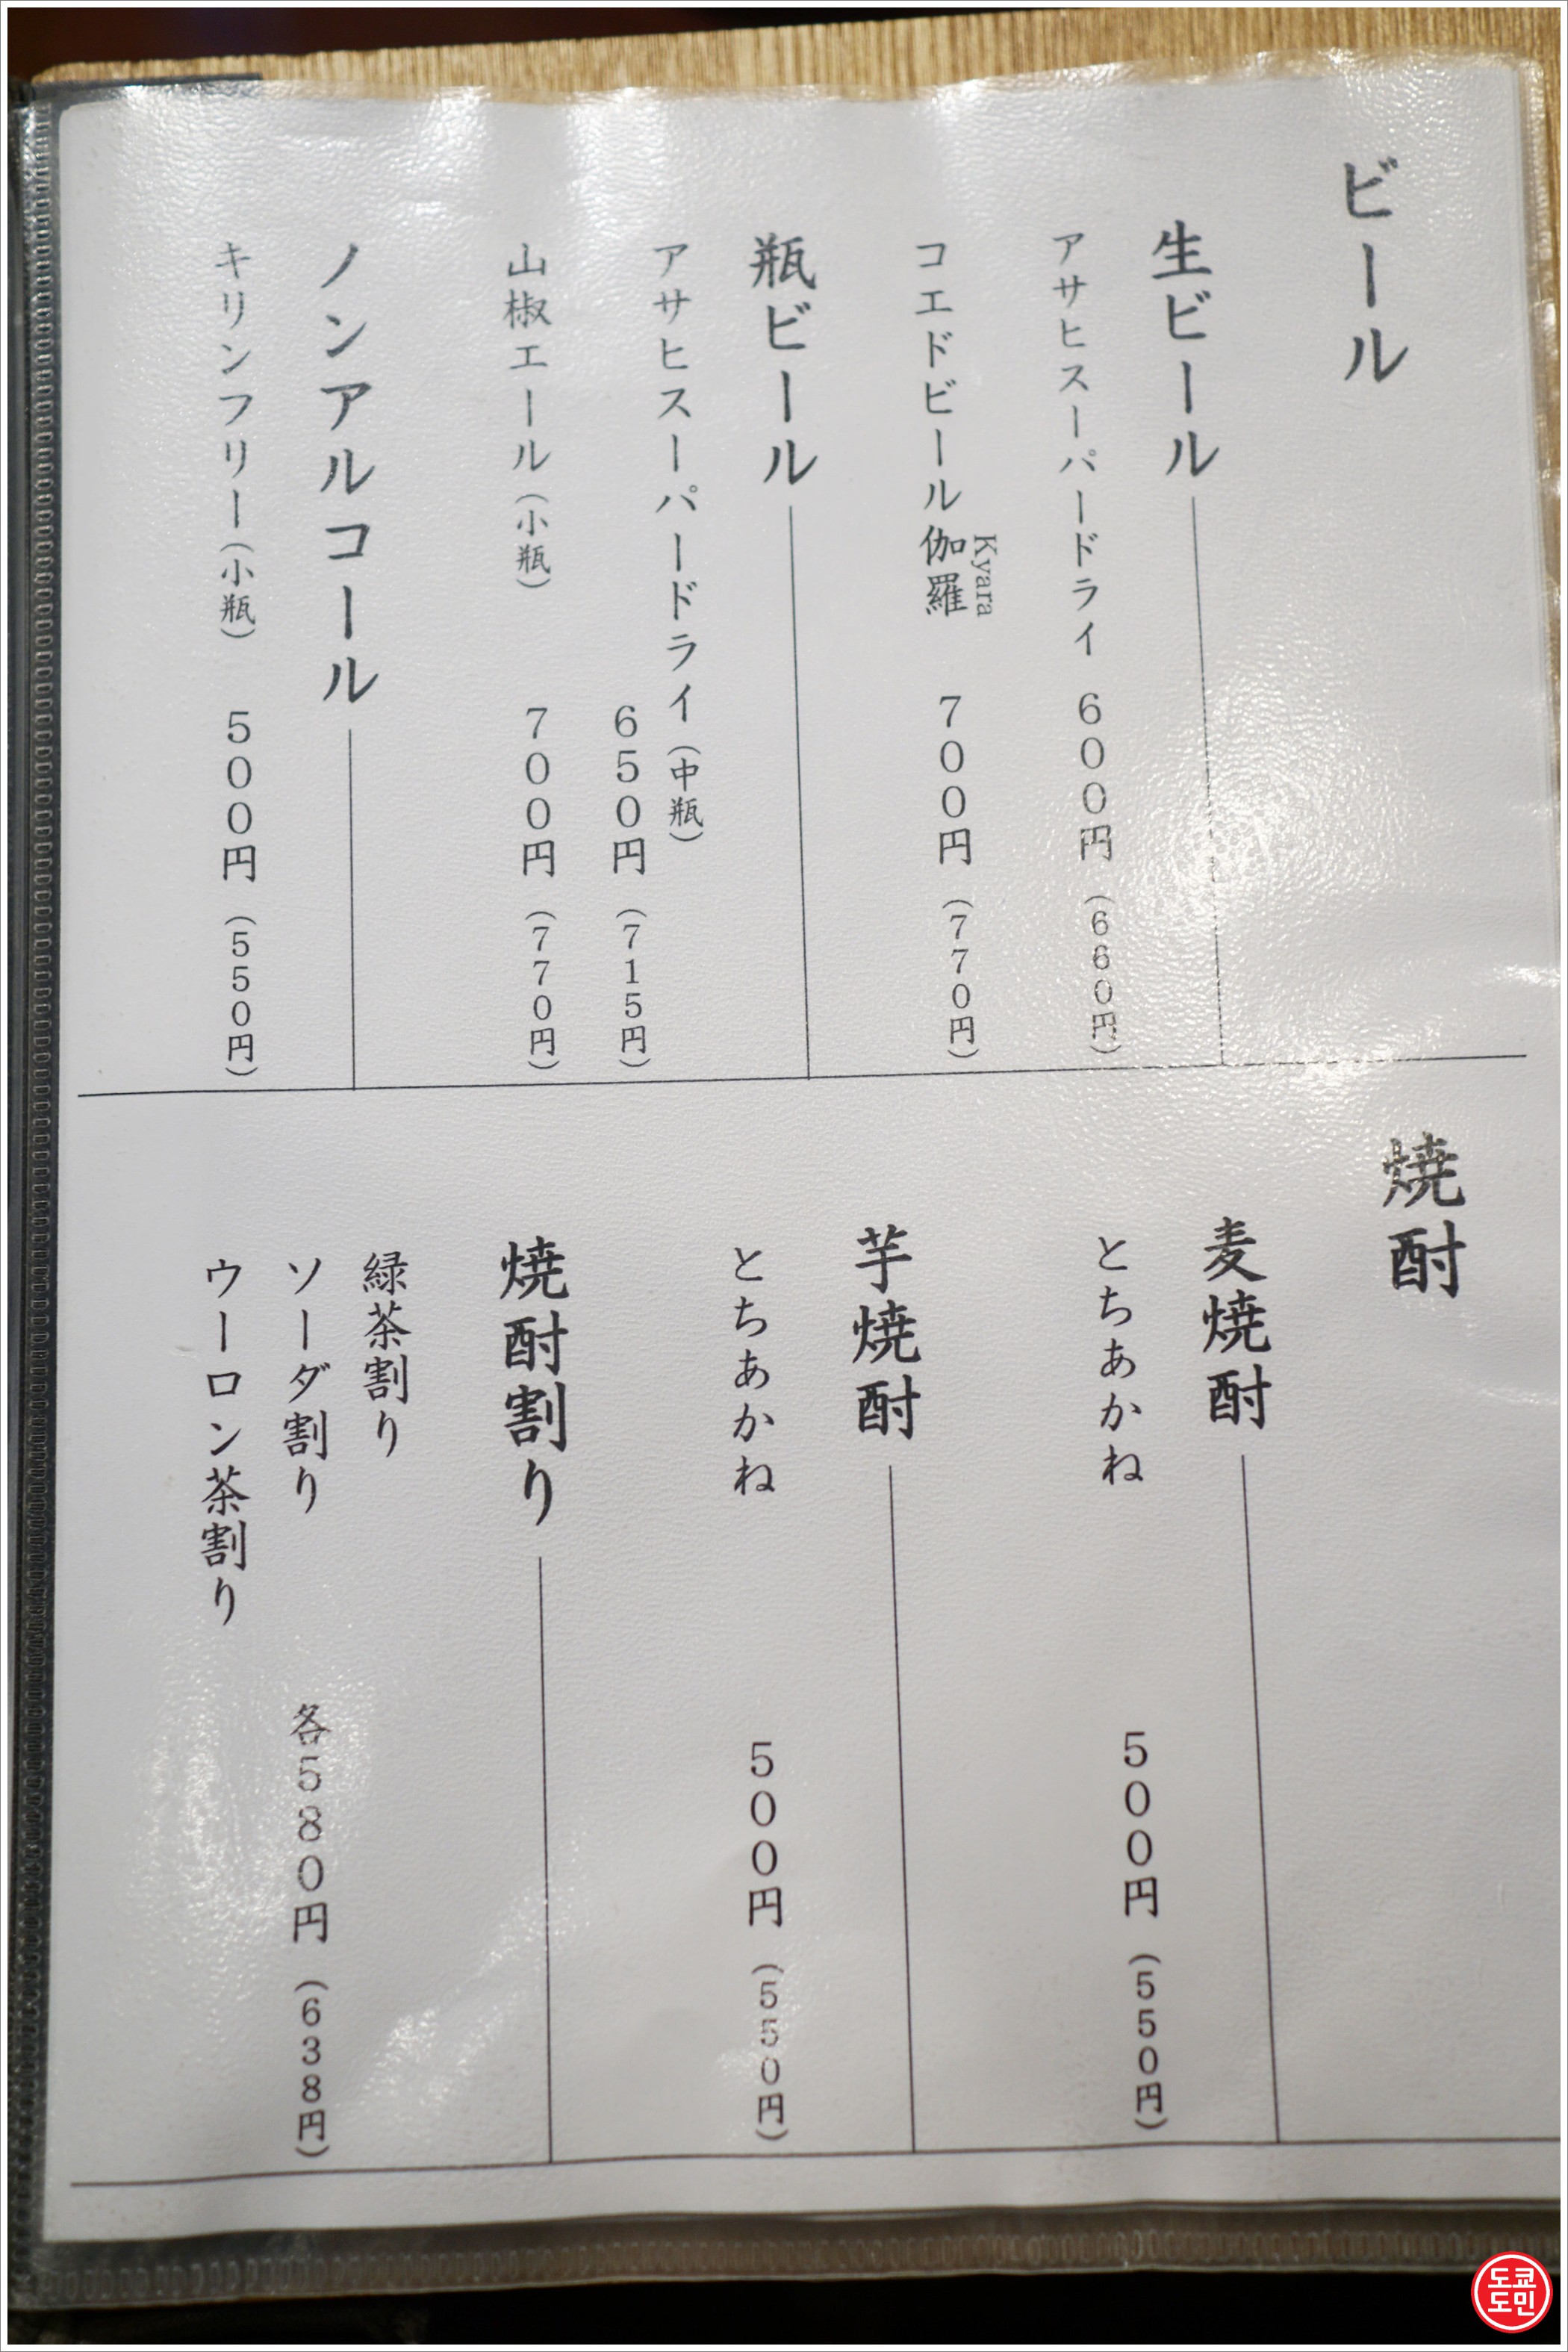 ビール
生ビール
アサヒスーパードライ 600円（660円）
Kyara
コエドビール伽羅 700円（770円）
瓶ビール
アサヒスーパードライ（中瓶）
650円（715円）
山椒エール（小瓶） 700円（770円）
ノンアルコール
キリンフリー（小瓶） 500円（550円）
焼酎
麦焼酎
とちあかね 500円（550円）
芋焼酎
とちあかね 500円（550円）
焼酎割り
緑茶割り
ソーダ割り 各580円（638円）
ウーロン茶割り
도쿄
도민